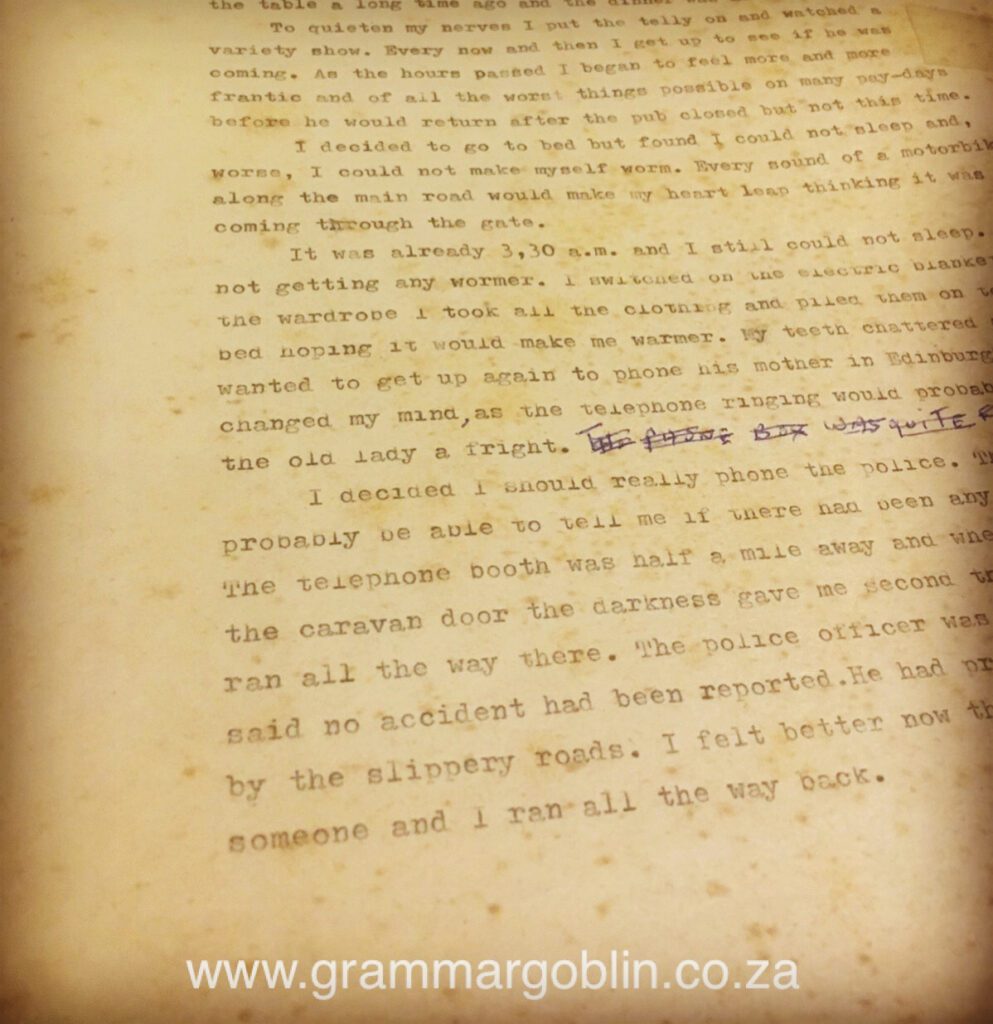 the table a long time ago and the dinner was
To quieten my nerves I put the telly on and watched a
variety show. Every now and then I get up to see if he was
coming. As the hours passed I began to feel more and more
frantic and of all the worst things possible on many pay-days
before he would return after the pub closed but not this time.
I decided to go to bed but found I could not sleep and,
worse, I could not make myself worm. Every sound of a motorbik
along the main road would make my heart leap thinking it was
coming through the gate.
It was already 3,30 a.m. and I still could not sleep.
not getting any wormer. I switched on the electric blanke
the wardrobe I took all the clothing and piled them on to
bed hoping it would make me warmer. My teeth chattered
wanted to get up again to phone his mother in Edinburg
changed my mind,as the telephone ringing would probab
the old lady a fright. THE PHONE BOX WAS QUITE
I decided I should really phone the police. T
probably be able to tell me if there had been any
The telephone booth was half a mile away and whe
the caravan door the darkness gave me second t
ran all the way there. The police officer was
said no accident had been reported.He had pr
by the slippery roads. I felt better now th
someone and I ran all the way back.
www.grammargoblin.co.za